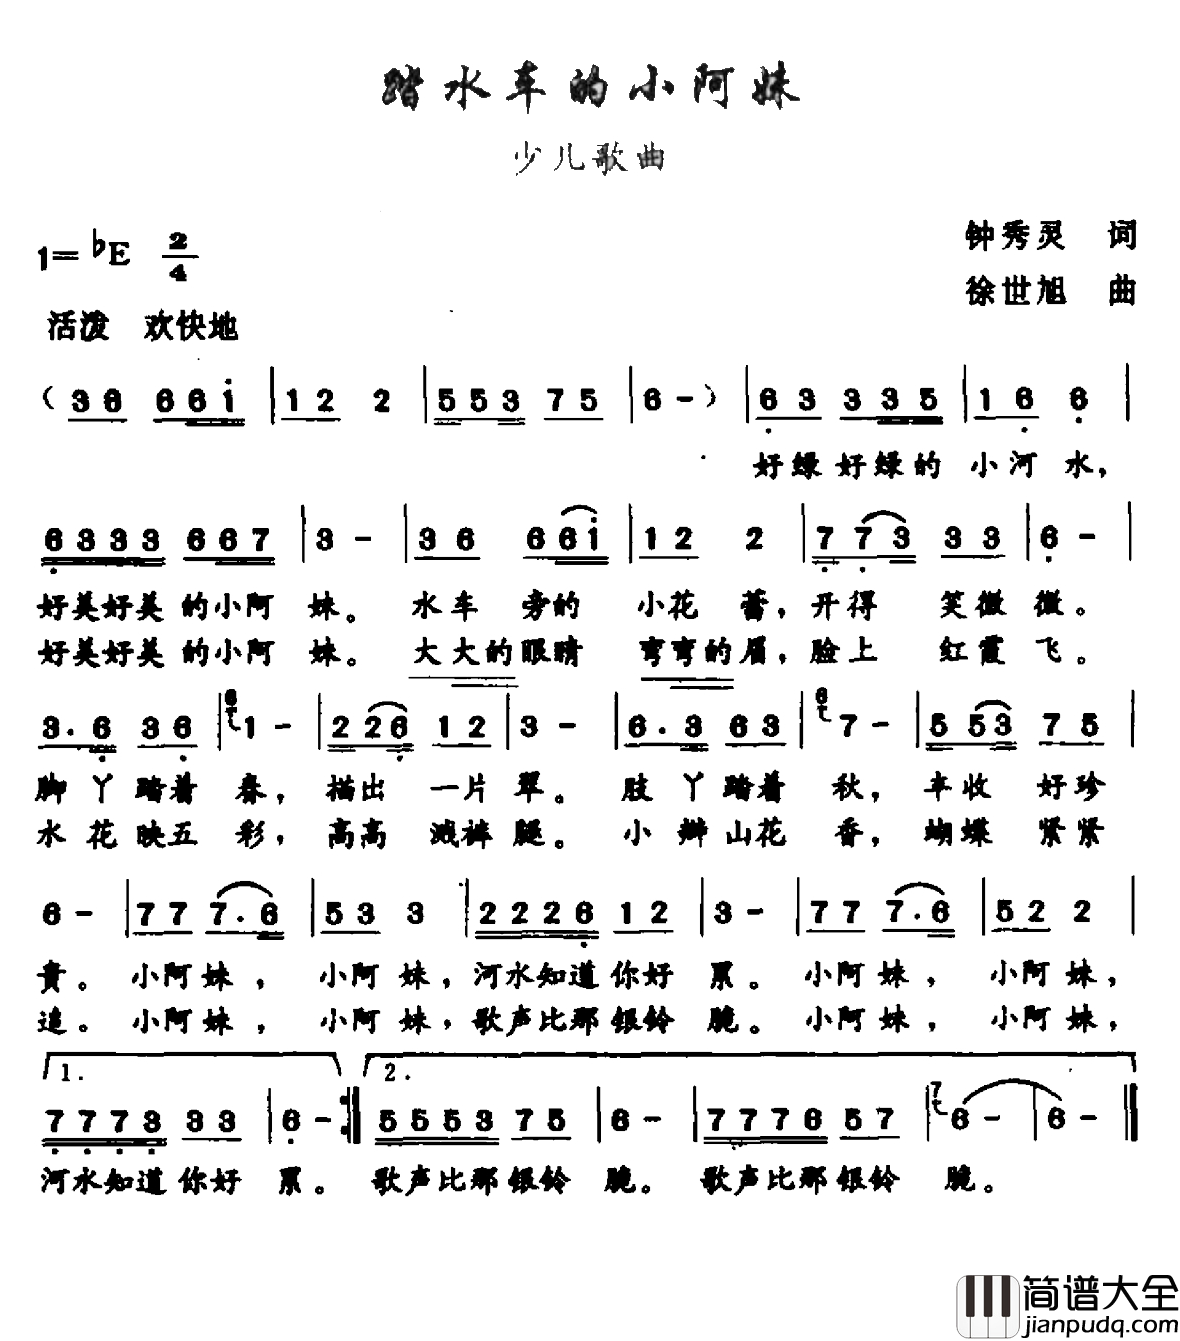 踏水车的小阿妹
少儿歌曲
1=♭E 2/4
钟秀灵 词
徐世旭 曲
活泼 欢快地
( 36 66i | 12 2 | 553 75 | 6 - ) | 63 335 | 16 6 |
好绿好绿的 小河水,
6333 667 | 3 - | 36 66i | 12 2 | 773 33 | 6 - |
好美好美 的小阿 妹。 水车 旁的 小花 蕾, 开得 笑微 微。
好美好美 的小阿 妹。 大大的眼睛 弯弯的眉, 脸上 红霞 飞。
3.6 36 | 6 1 - | 226 12 | 3 - | 6.3 63 | 6 7 - | 553 75 |
脚丫踏着 春, 描出 一片 翠。 肢丫踏着 秋, 丰收 好珍
水花映五 彩, 高高 溅裤 腿。 小辫山花 香, 蝴蝶 紧紧
6 - | 77 7.6 | 53 3 | 2226 12 | 3 - | 77 7.6 | 52 2 |
贵。 小阿妹, 小阿妹, 河水知道 你好 累。 小阿妹, 小阿妹,
追。 小阿妹, 小阿妹, 歌声比那 银铃 脆。 小阿妹, 小阿妹,
1. 2.
7773 33 | 6 - :| 5553 75 | 6 - | 7776 57 | 7 6 - | 6 - ‖
河水知道 你好 累。 歌声比那 银铃 脆。 歌声比那 银铃 脆。
简谱大全
jianpudq.com